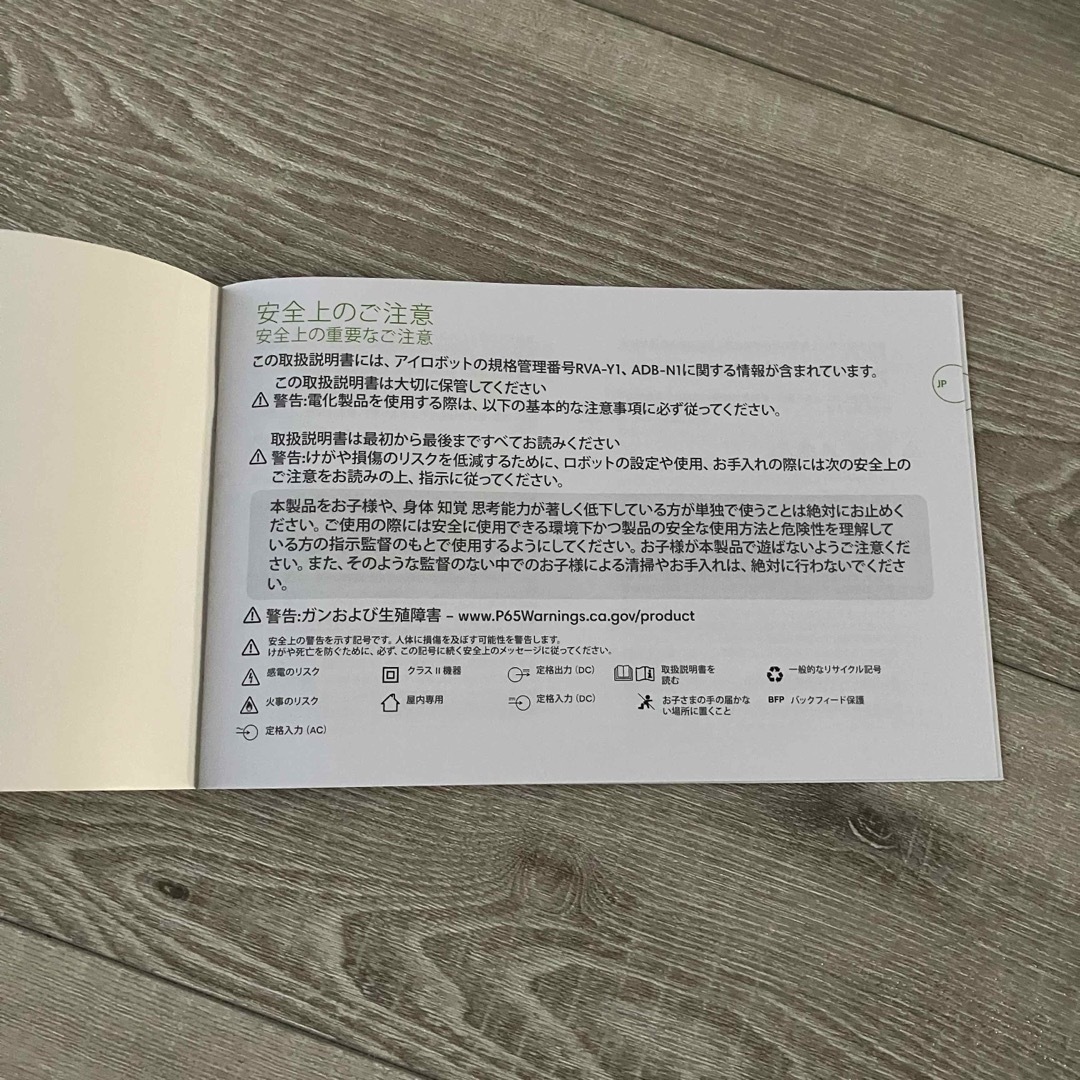 安全上のご注意
安全上の重要なご注意
この取扱説明書には、アイロボットの規格管理番号RVA-Y1、ADB-N1に関する情報が含まれています。
この取扱説明書は大切に保管してください
警告:電化製品を使用する際は、以下の基本的な注意事項に必ず従ってください。
取扱説明書は最初から最後まですべてお読みください
警告:けがや損傷のリスクを低減するために、ロボットの設定や使用、お手入れの際には次の安全上の
ご注意をお読みの上、指示に従ってください。
本製品をお子様や、身体 知覚 思考能力が著しく低下している方が単独で使うことは絶対にお止めく
ださい。ご使用の際には安全に使用できる環境下かつ製品の安全な使用方法と危険性を理解して
いる方の指示監督のもとで使用するようにしてください。お子様が本製品で遊ばないようご注意くだ
さい。また、そのような監督のない中でのお子様による清掃やお手入れは、絶対に行わないでくださ
い。
警告:ガンおよび生殖障害 – www.P65Warnings.ca.gov/product
安全上の警告を示す記号です。人体に損傷を及ぼす可能性を警告します。
けがや死亡を防ぐために、必ず、この記号に続く安全上のメッセージに従ってください。
感電のリスク
クラス II 機器
定格出力 (DC)
取扱説明書を
読む
一般的なリサイクル記号
火事のリスク
屋内専用
定格入力 (DC)
お子さまの手の届かな
い場所に置くこと
BFP バックフィード保護
定格入力 (AC)
JP